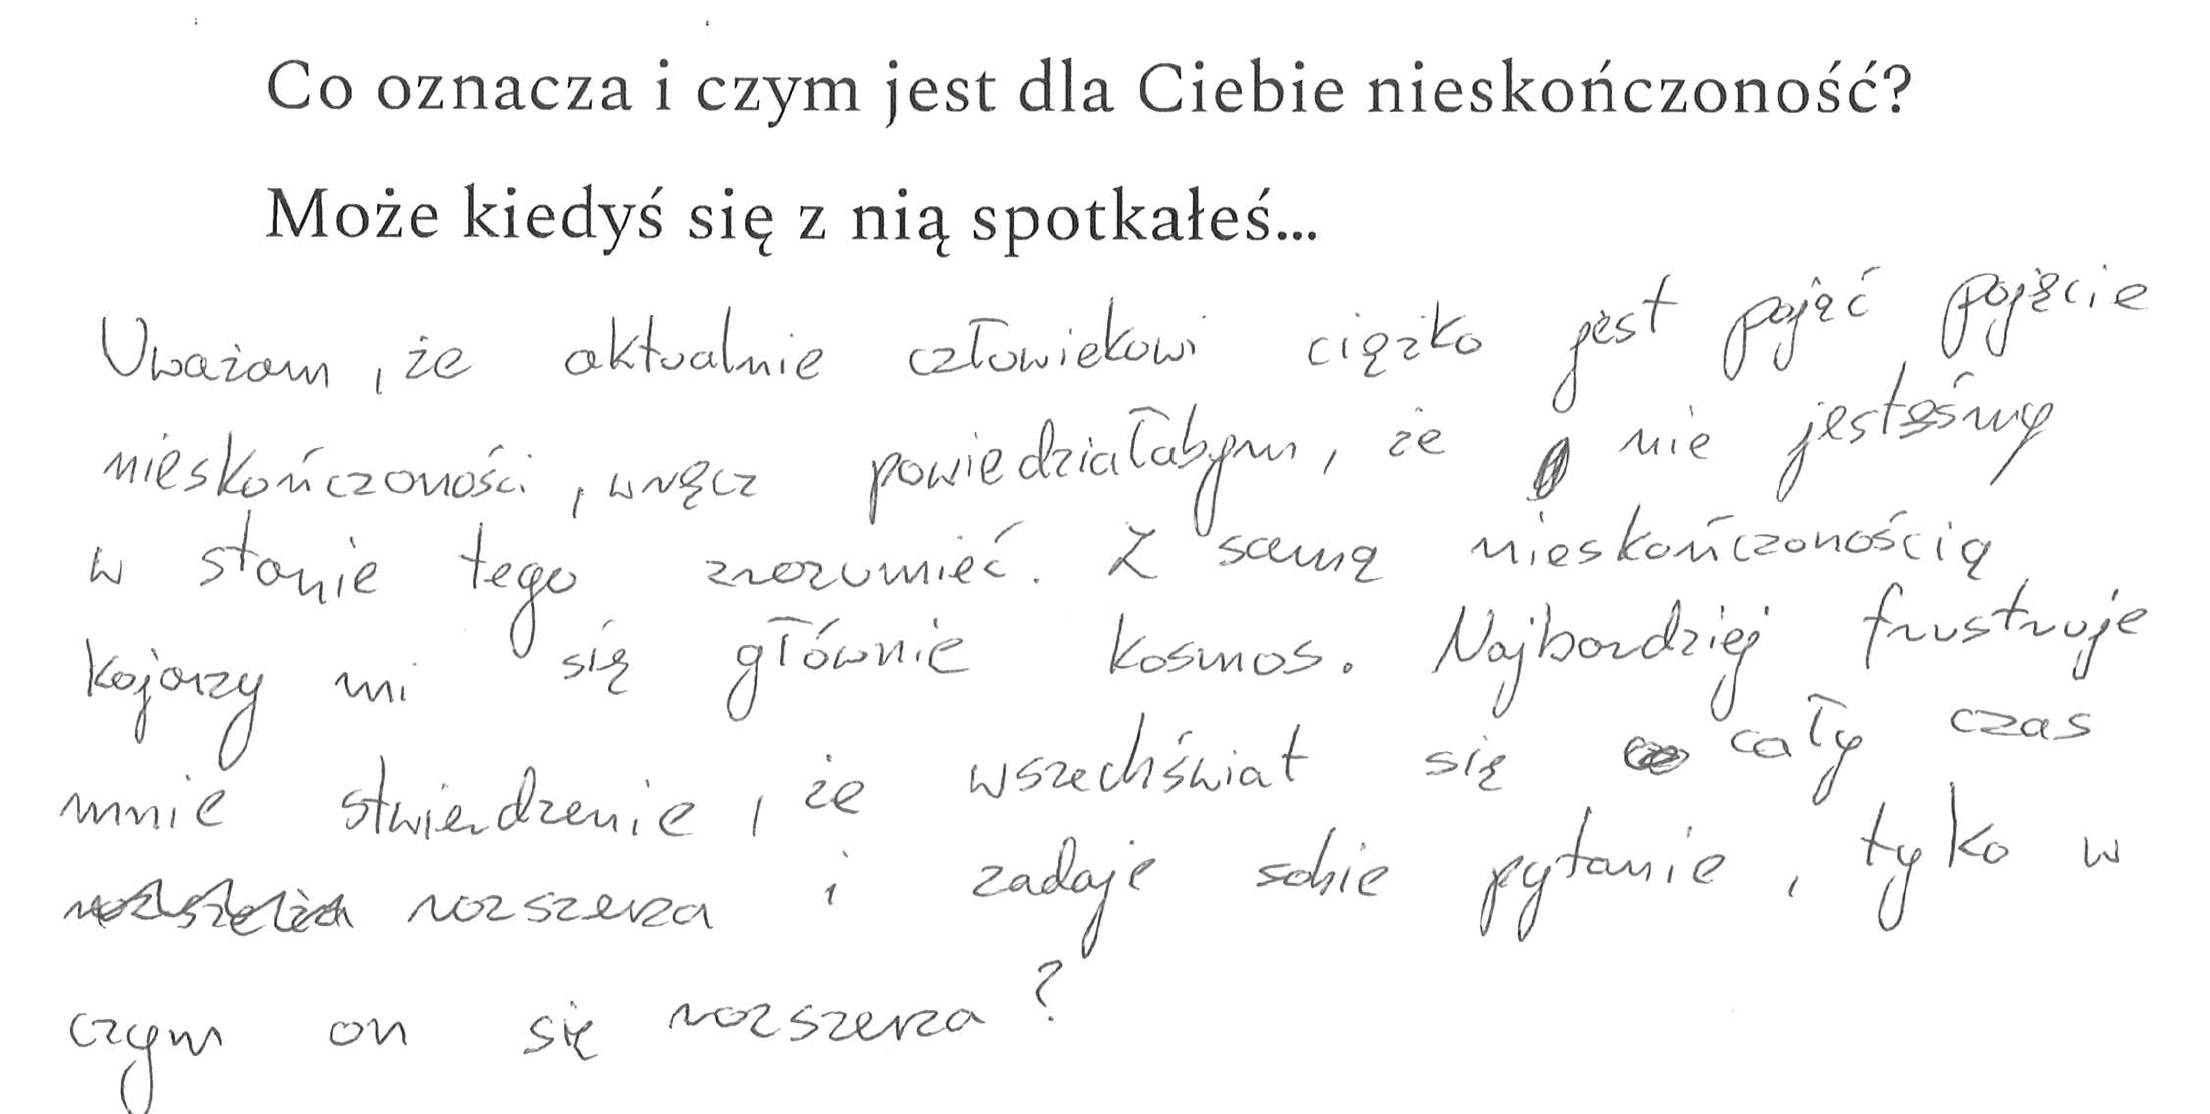 Co oznacza i czym jest dla Ciebie nieskończoność?
Może kiedyś się z nią spotkałeś...
Uważam, że aktualnie człowiekowi ciężko jest pojąć pojęcie
nieskończoności, wręcz powiedziałabym, że nie jesteśmy
w stanie tego zrozumieć. Z samą nieskończonością
kojarzy mi się głównie kosmos. Najbardziej frustruje
mnie stwierdzenie, że wszechświat się cały czas
rozszerza i zadaje sobie pytanie, tylko w
czym on się rozszerza?